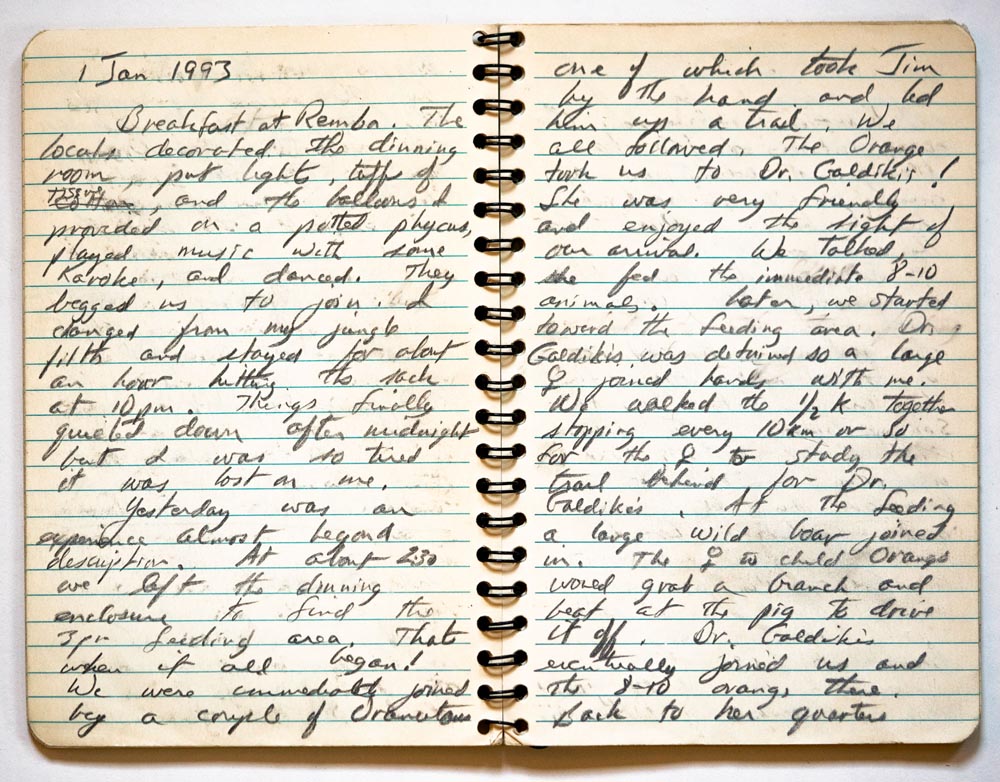 1 Jan 1993
Breakfast at Remba. The
locals decorated the dinning
room, put lights, tuffs of
tissue, and the balloons I
provided on a potted phycus,
played music with some
Karoke, and danced. They
begged us to join. I
changed from my jungle
filth and stayed for about
an hour hitting the sack
at 10 pm. Things finally
quieted down after midnight
but I was so tired
it was lost on me.
Yesterday was an
experience almost beyond
description. At about 230
we left the dinning
enclosure to find the
3pm feeding area. That's
when it all began!
We were immediately joined
by a couple of Orangutans
one of which took Jim
by the hand and led
him up a trail. We
all followed. The Orange
took us to Dr. Galdikis!
She was very friendly
and enjoyed the sight of
our arrival. We talked,
she fed the immediate 8-10
animals. Later, we started
toward the feeding area. Dr.
Galdikis was detained so a large
♀ joined hands with me.
We walked the 1/2 K together
stopping every 10 km or so
for the ♀ to study the
trail behind for Dr.
Galdikis. At the feeding
a large wild boar joined
in. The ♀ w child Orangs
would grab a branch and
beat at the pig to drive
it off. Dr. Galdikis
eventually joined us and
the 8-10 orangs there.
Back to her quarters